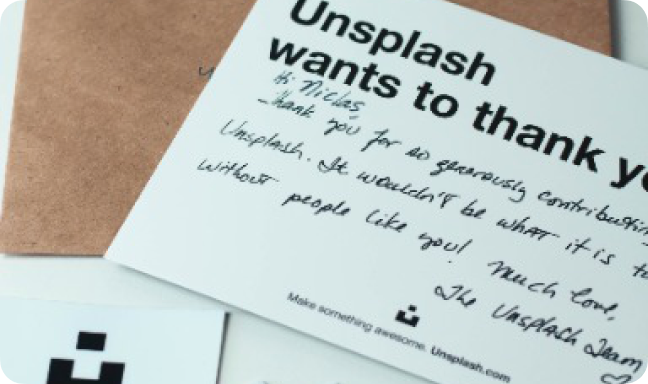 Unsplash
wants to thank yo
Hi Niclas,
Thank you for so generously contributing
Unsplash. It wouldn't be what it is to
without people like you! Much love,
The Unsplash Team
Make something awesome. Unsplash.com